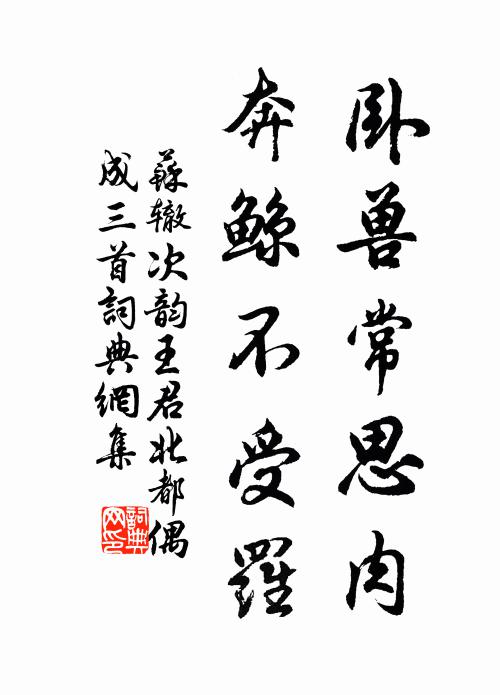 卧兽常思肉
奔鲸不受羅
蘇辙次韵王君北都偶
成三首詞典網集
詞典网印